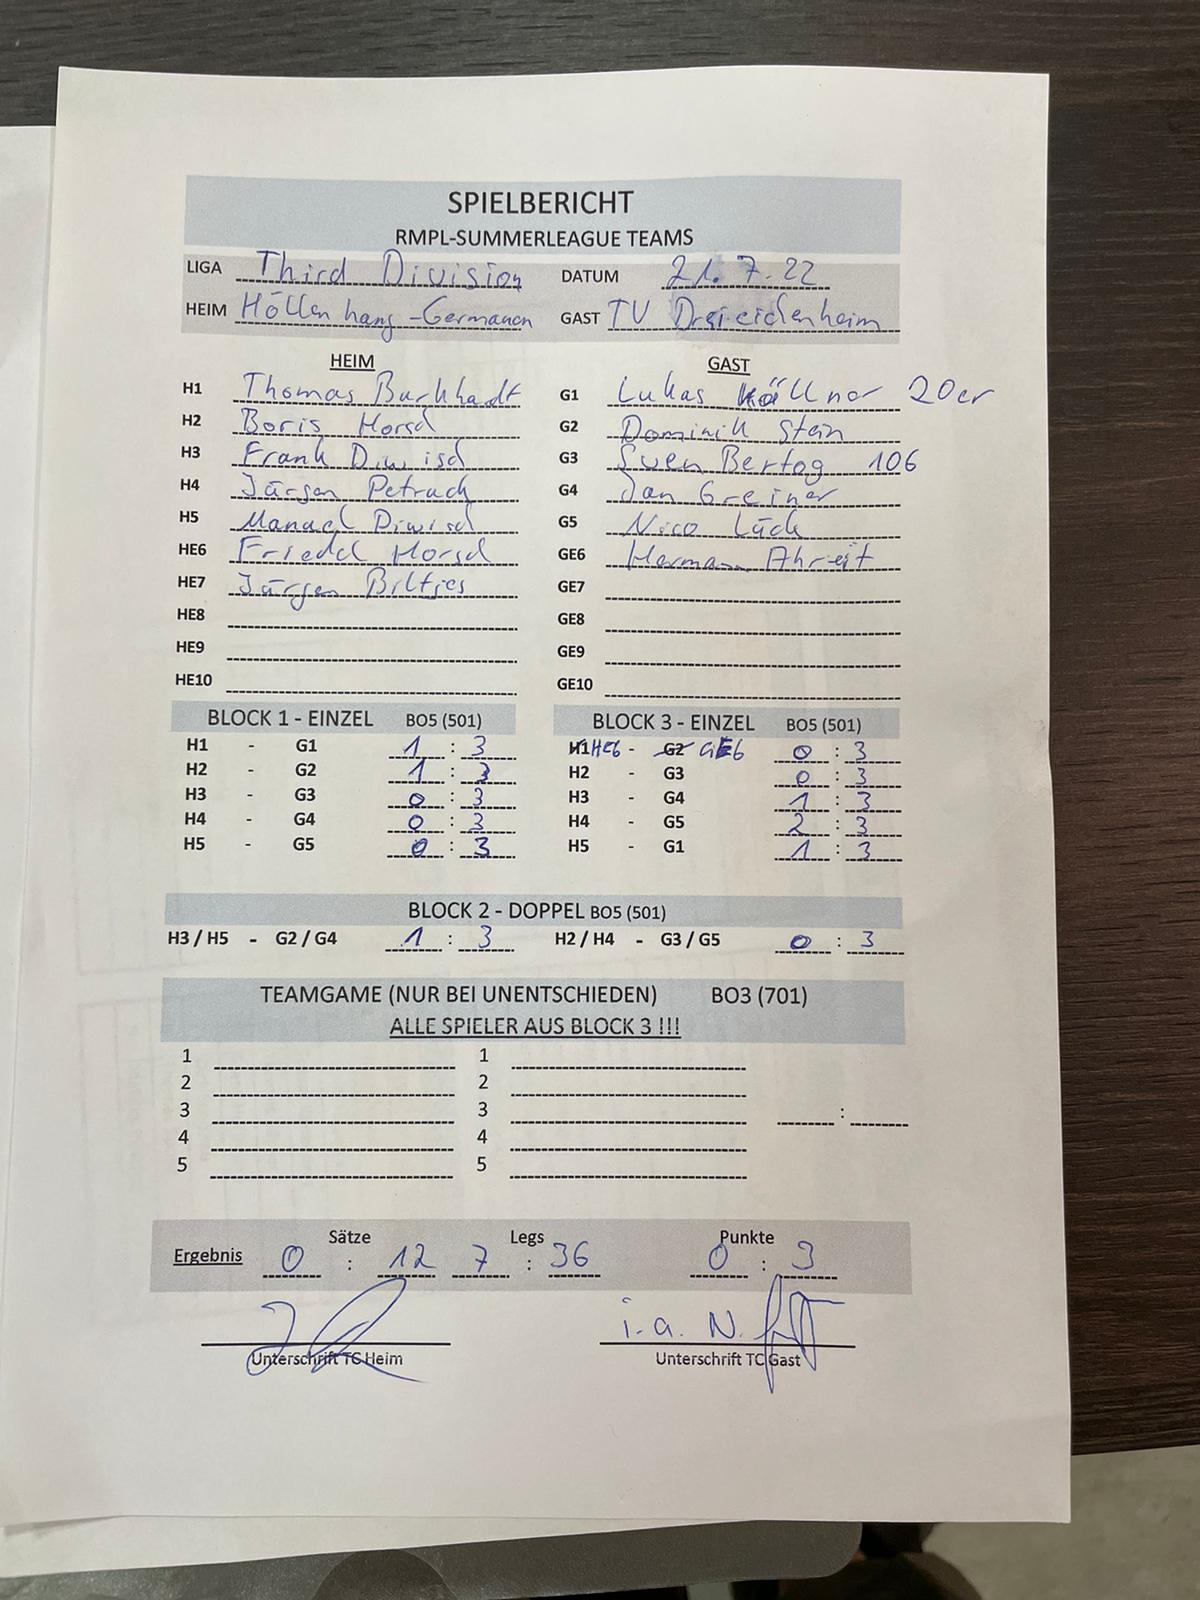 SPIELBERICHT
RMPL-SUMMERLEAGUE TEAMS
LIGA Third Division DATUM 21.7.22
HEIM Höllenhang-Germanen GAST TV Dreieichenheim
HEIM GAST
H1 Thomas Burkhardt G1 Lukas Köllner 20er
H2 Boris Horsd G2 Dominik Stein
H3 Frank Diwisd G3 Sven Bertog 106
H4 Jürgen Petrach G4 Jan Greiner
H5 Manuel Diwisd G5 Nico Lück
HE6 Friedel Horsd GE6 Hermann Ahreit
HE7 Jürgen Biltjes GE7
HE8 GE8
HE9 GE9
HE10 GE10
BLOCK 1 - EINZEL BO5 (501) BLOCK 3 - EINZEL BO5 (501)
H1 - G1 1 : 3 H1 HE6 - G2 GE6 0 : 3
H2 - G2 1 : 3 H2 - G3 0 : 3
H3 - G3 0 : 3 H3 - G4 1 : 3
H4 - G4 0 : 3 H4 - G5 2 : 3
H5 - G5 0 : 3 H5 - G1 1 : 3
BLOCK 2 - DOPPEL BO5 (501)
H3 / H5 - G2 / G4 1 : 3 H2 / H4 - G3 / G5 0 : 3
TEAMGAME (NUR BEI UNENTSCHIEDEN) BO3 (701)
ALLE SPIELER AUS BLOCK 3 !!!
1 1
2 2
3 3 :
4 4
5 5
Sätze Legs Punkte
Ergebnis 0 : 12 7 : 36 0 : 3
i.a. N.
Unterschrift TC Heim Unterschrift TC Gast